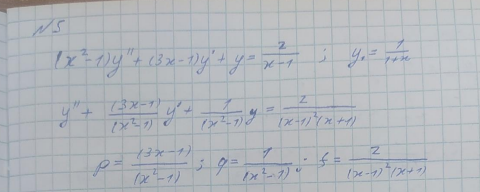 №5
(x²-1)y'' + (3x-1)y' + y = 2/(x-1) ; y₀ = 1/(1+x)
y'' + (3x-1)/(x²-1) y' + 1/(x²-1) y = 2/((x-1)²(x+1))
p = (3x-1)/(x²-1) ; q = 1/(x²-1) , f = 2/((x-1)²(x+1))